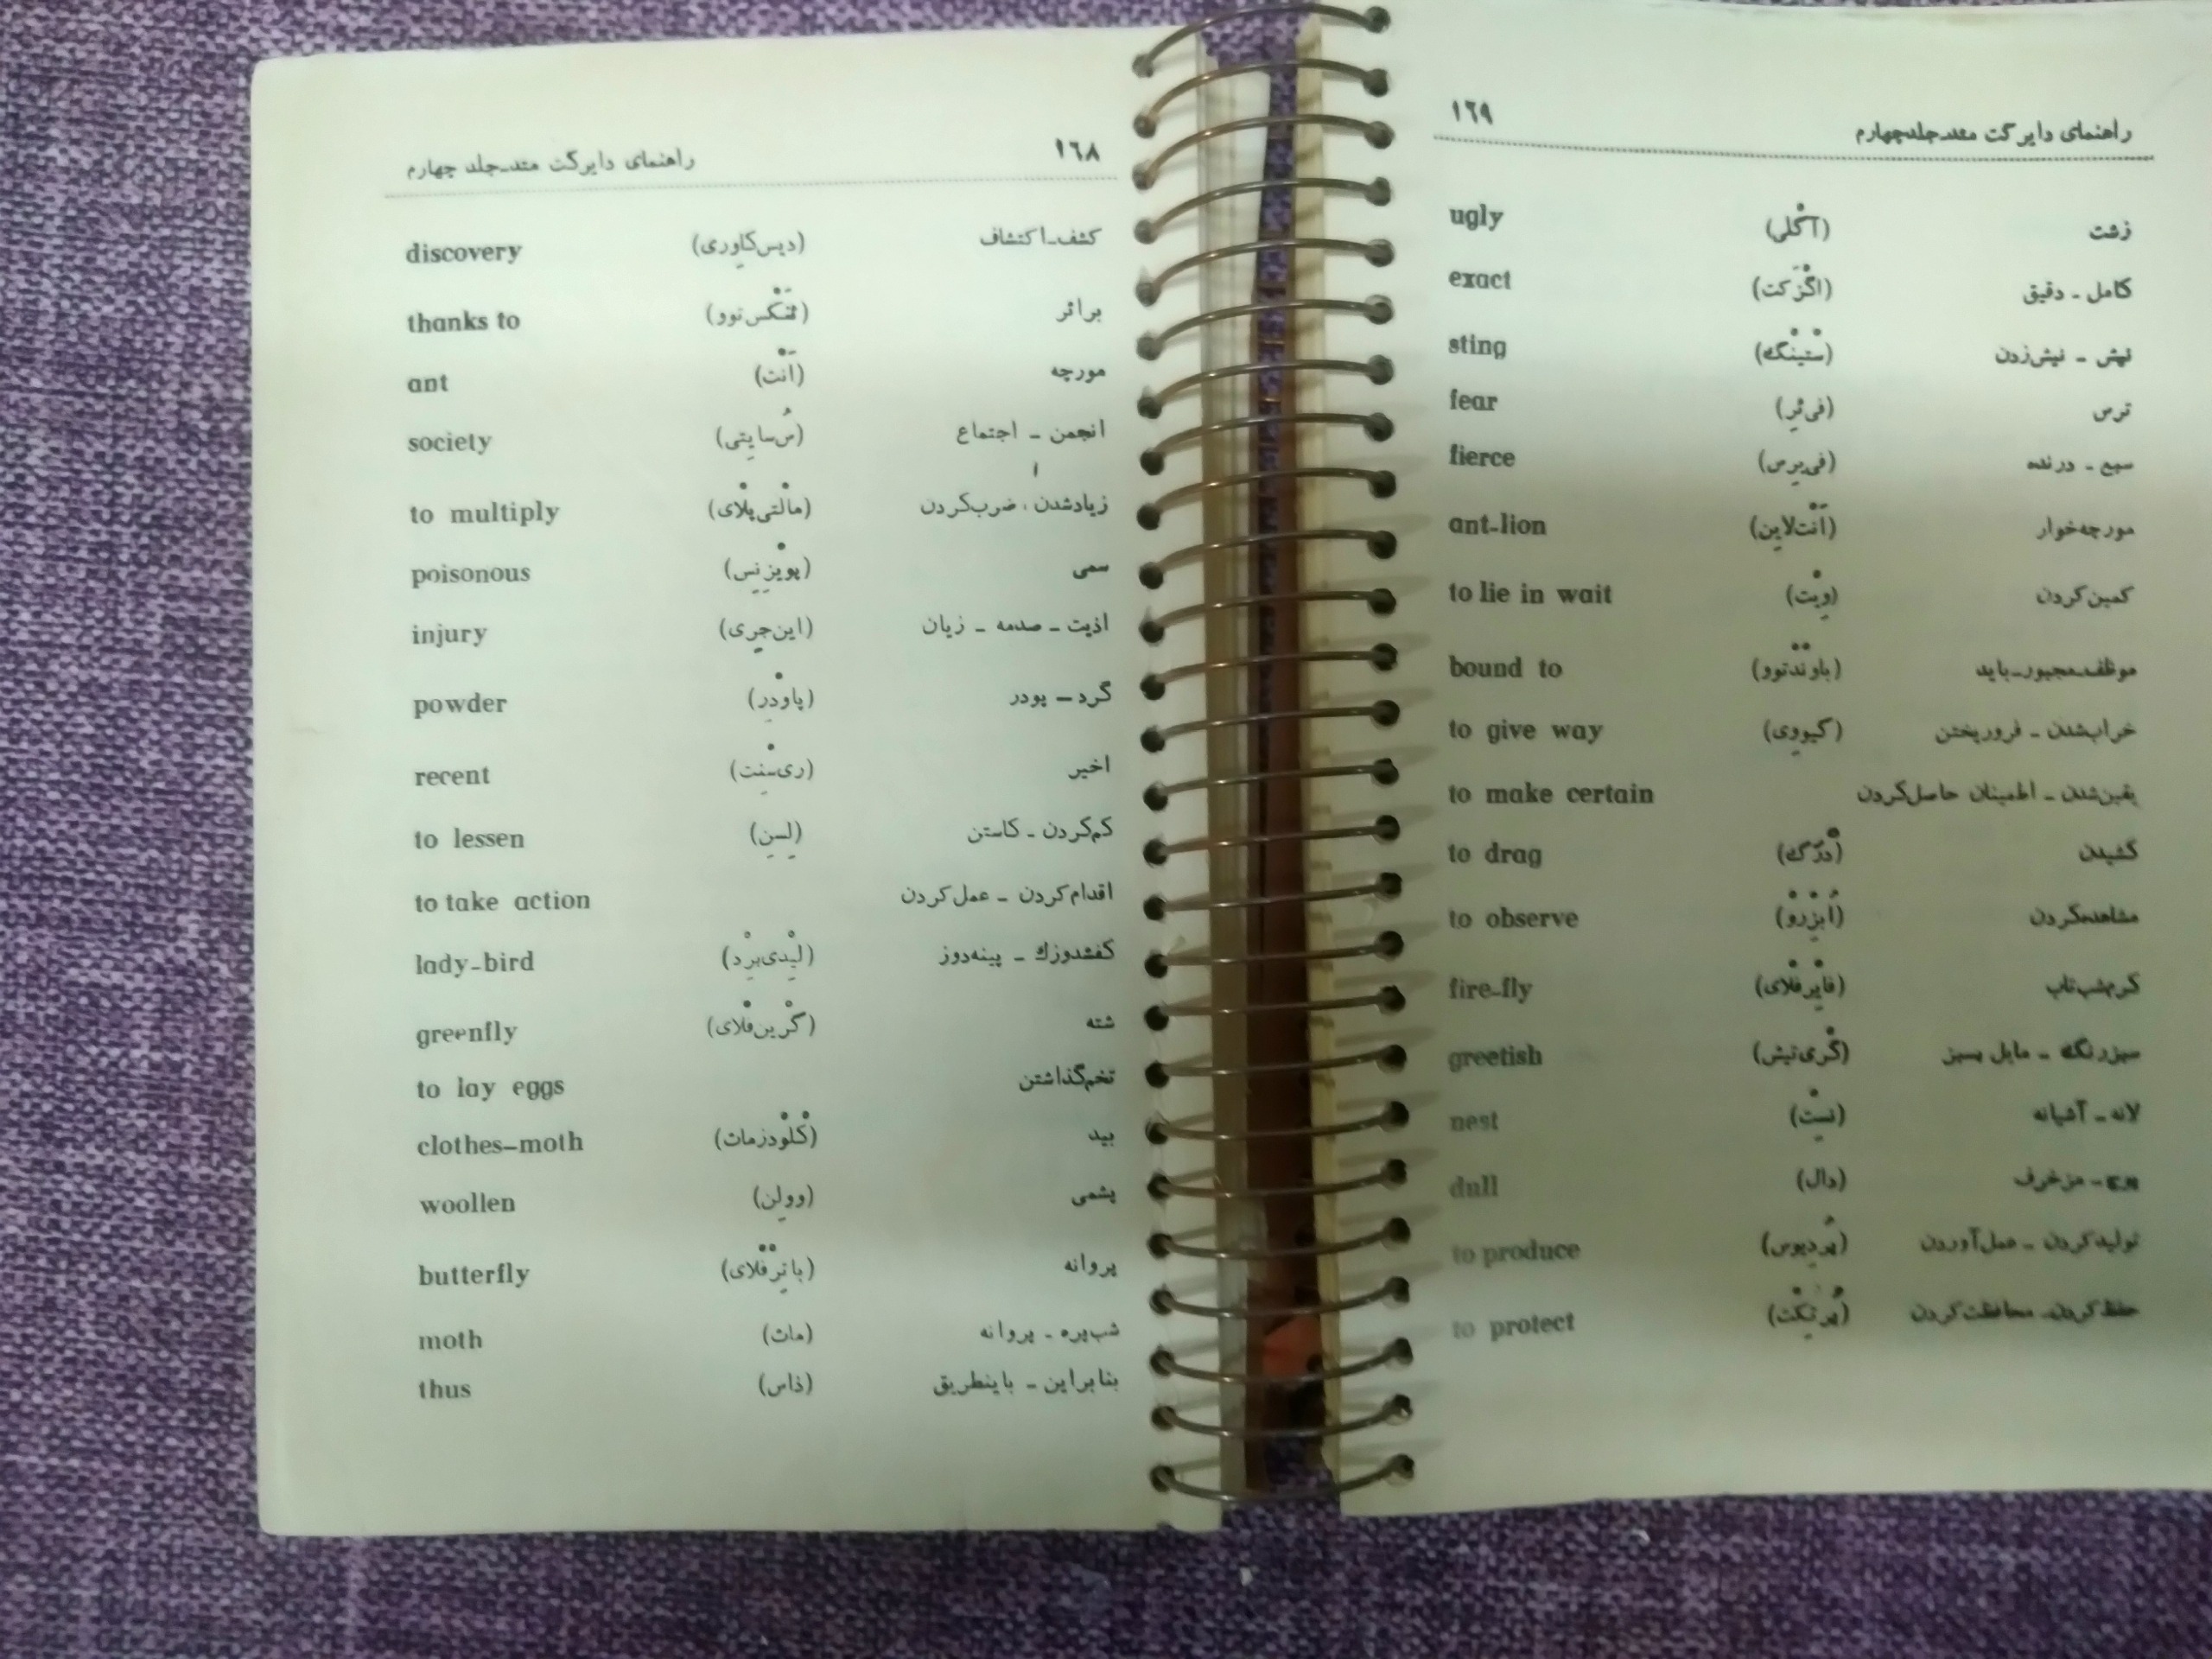 راهنمای دایرکت متد_جلد چهارم ۱۶۸
discovery (دیس‌کاوِری) کشف_اکتشاف
thanks to (ثَنْکْس توو) براثر
ant (اَنْت) مورچه
society (سُ‌سایِتی) انجمن _ اجتماع
to multiply (مالْتی‌پْلای) زیادشدن، ضرب‌کردن
poisonous (پویْزِنِس) سمی
injury (این‌جِری) اذیت _ صدمه _ زیان
powder (پاوْدِر) گرد _ پودر
recent (ری‌سِنْت) اخیر
to lessen (لِسِن) کم‌کردن _ کاستن
to take action اقدام‌کردن _ عمل‌کردن
lady-bird (لِیْدی‌بِرْد) کفشدوزك _ پینه‌دوز
greenfly (گْرین‌فْلای) شته
to lay eggs تخم‌گذاشتن
clothes-moth (کْلوْدزمات) بید
woollen (وولِن) پشمی
butterfly (باتِرْفْلای) پروانه
moth (مات) شب‌پره _ پروانه
thus (ذاس) بنابراین _ باینطریق
۱۶۹ راهنمای دایرکت متد_جلدچهارم
ugly (آگْلی) زشت
exact (اگْزَکت) کامل _ دقیق
sting (سْتینْگ) نیش _ نیش‌زدن
fear (فی‌ئِر) ترس
fierce (فی‌یرس) سبع _ درنده
ant-lion (اَنْت‌لایِن) مورچه‌خوار
to lie in wait (وِیْت) کمین‌کردن
bound to (باونْدْتوو) موظف_مجبور_باید
to give way (گیووِی) خراب‌شدن _ فروریختن
to make certain یقین‌شدن _ اطمینان حاصل‌کردن
to drag (دْرَگ) کشیدن
to observe (اُبْزِرْوْ) مشاهده‌کردن
fire-fly (فایْرفْلای) کرم‌شب‌تاب
greetish (گْری‌تیش) سبزرنگ _ مایل بسبز
nest (نِسْت) لانه _ آشیانه
dnll (دال) _ مزخرف
to produce (پُردیوس) تولیدکردن _ عمل‌آوردن
to protect (پُرتِکْت) حفظ‌کردن_ محافظت‌کردن